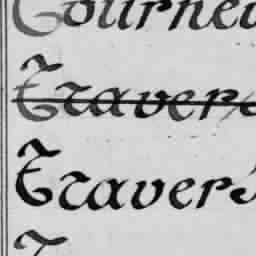 Tournei
Traver
Travers